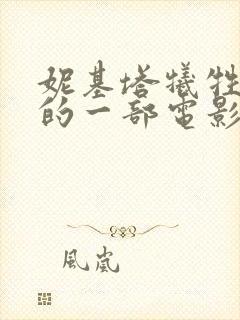 妮基塔犧牲
的一部電影
風嵐